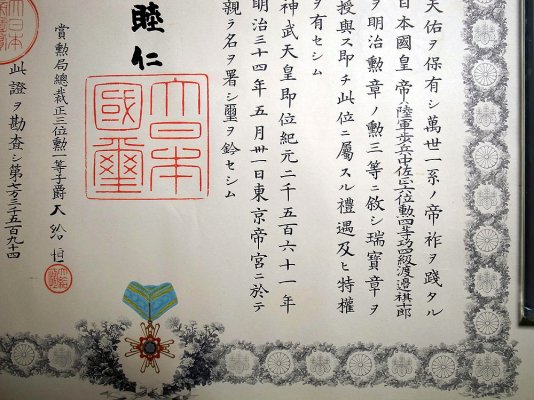 天佑ヲ保有シ萬世一系ノ帝祚ヲ踐タル
日本國皇帝ハ陸軍歩兵中佐正六位勲四等功四級渡邊祺十郎
ヲ明治勲章ノ勲三等ニ敘シ瑞寶章ヲ
授與ス即チ此位ニ屬スル禮遇及ヒ特權
ヲ有セシム
神武天皇即位紀元二千五百六十一年
明治三十四年五月卅一日東京帝宮ニ於テ
親ラ名ヲ署シ璽ヲ鈐セシム
睦仁
大日本國璽
賞勲局總裁正三位勲一等子爵大給恒
此證ヲ勘査シ第七万三千五百九十四